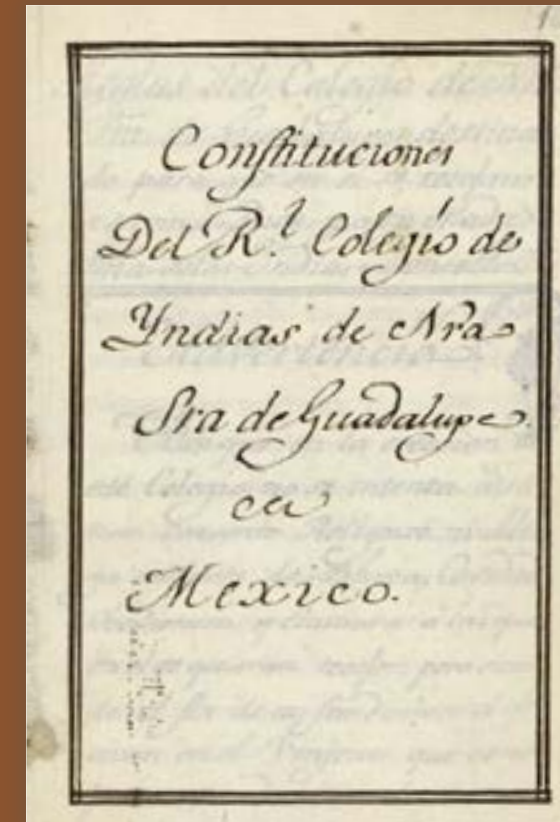 Constituciones
Del R.l Colegio de
Yndias de Nra
Sra de Guadalupe
en
Mexico.